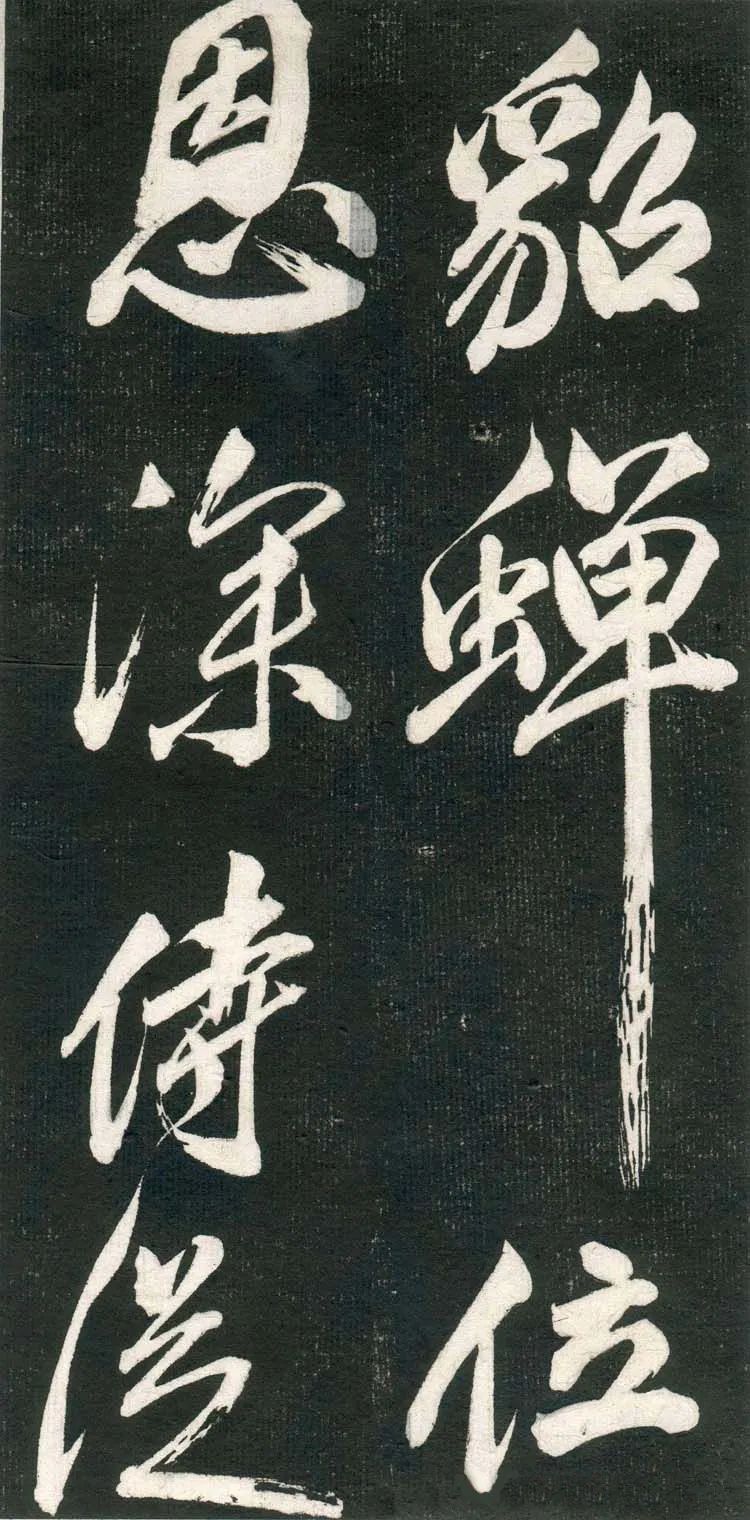 貂蟬位
恩深侍從